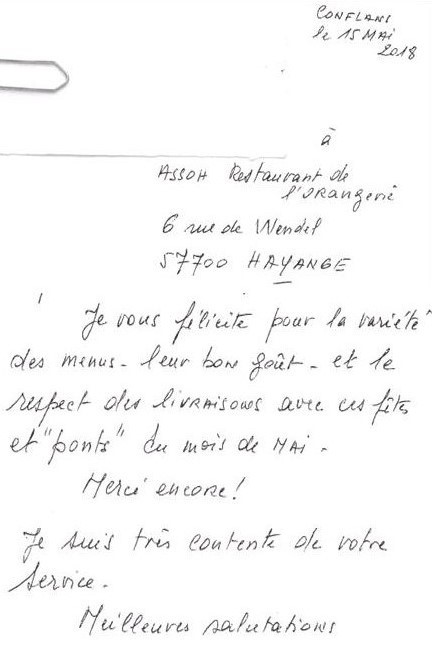 CONFLANS
le 15 MAI
2018
à
ASSOH Restaurant de
l'ORangerie
6 rue de Wendel
57700 HAYANGE
Je vous félicite pour la variété
des menus - leur bon goût - et le
respect des livRaisons avec ces fêtes
et "ponts" du mois de MAI.
Merci encore!
Je suis très contente de votre
Service.
Meilleures salutations